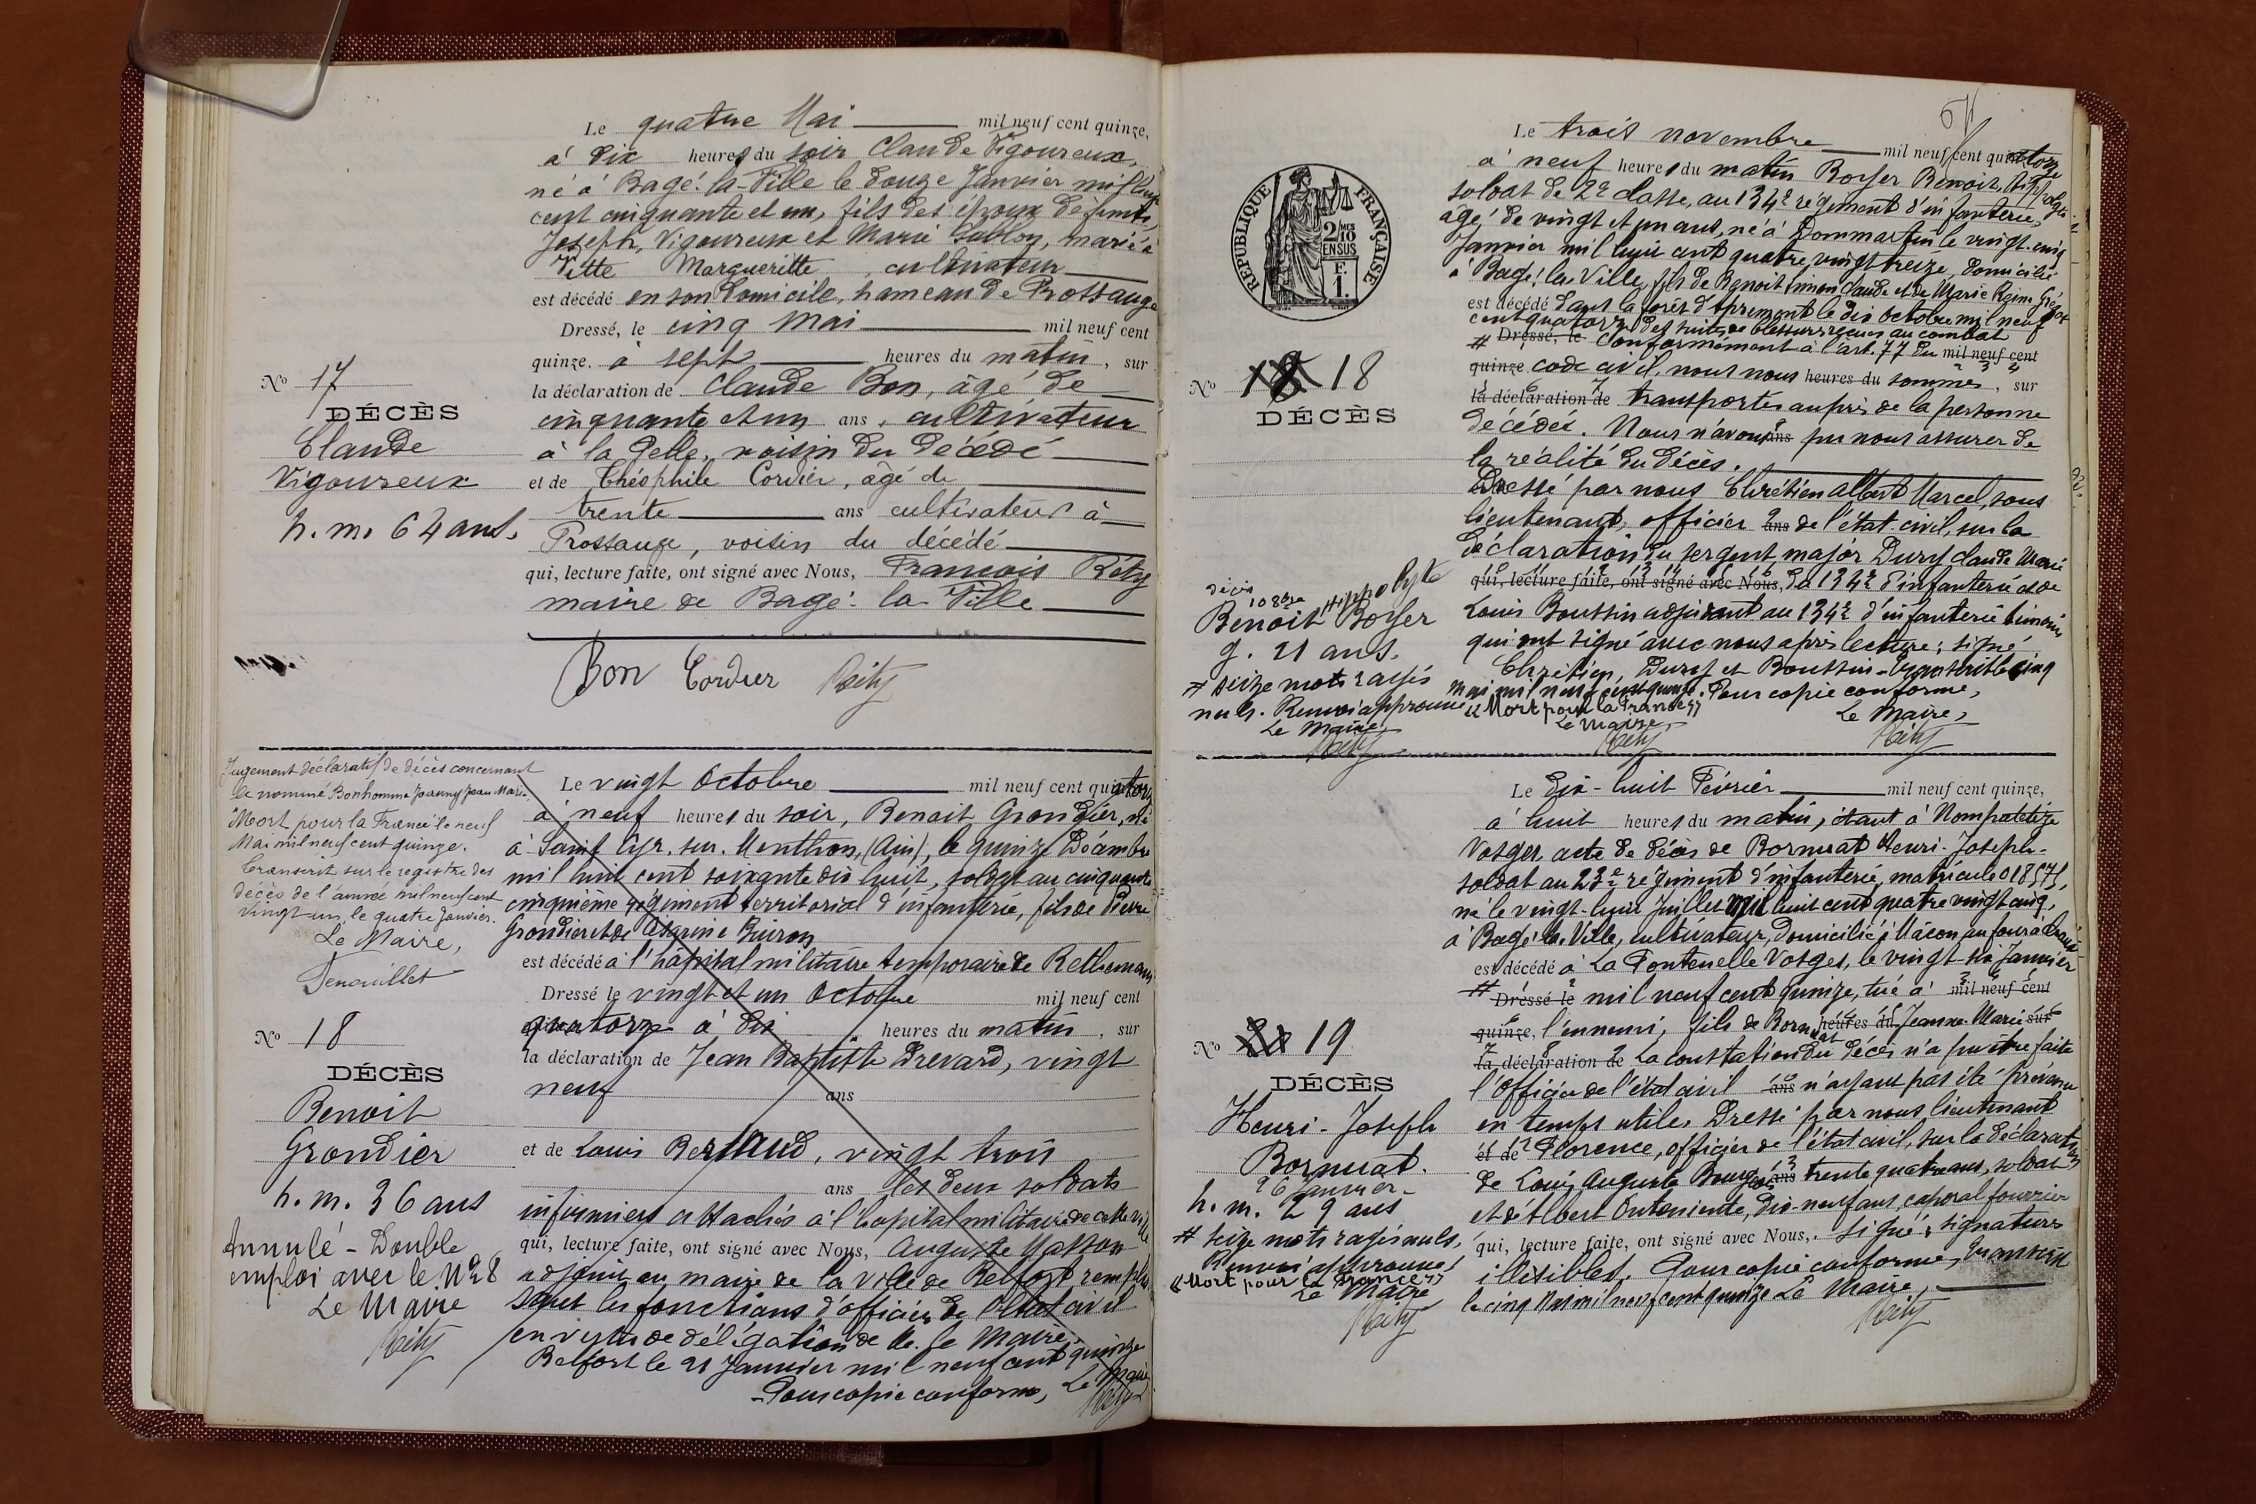 Le quatre Mai mil neuf cent quinze,
à dix heures du soir Claude Vigoureux,
né à Bagé-la-Ville le douze Janvier mil huit
cent cinquante et un, fils des époux défunts,
Joseph, Vigoureux et Marie Sablon, marié à
Vitte Margueritte, cultivateur
est décédé en son domicile, hameau de Prossange
Dressé, le cinq Mai mil neuf cent
quinze. à sept heures du matin, sur
la déclaration de Claude Bon, âgé de
cinquante et un ans, cultivateur
à la Pelle, voisin du décédé
et de Théophile Cordier, âgé de
trente ans cultivateur à
Prossange, voisin du décédé
qui, lecture faite, ont signé avec Nous, François Réty
maire de Bagé-la-Ville
Bon Cordier Réty
No 17
DÉCÈS
Claude
Vigoureux
h. m. 64 ans.
Jugement déclaratif de décès concernant
le nommé Bonhomme Joanny Jean Marie
Mort pour la France le neuf
Mai mil neuf cent quinze.
Transcrit sur le registre des
décès de l'année mil neuf cent
vingt un, le quatre Janvier.
Le Maire,
No 18
DÉCÈS
Benoit
Grondier
h. m. 36 ans
Annulé - Double
emploi avec le No 8
Le Maire
Réty
Le vingt Octobre mil neuf cent quatorze
à neuf heures du soir, Benoit Grondier, né
à Saint Cyr-sur-Menthon, (Ain), le quinze Décembre
mil huit cent soixante dix huit, soldat au cinquante
cinquième régiment territorial d'infanterie, fils de Pierre
Grondier et de Buiron
est décédé à l'hôpital militaire temporaire de Rethemans
Dressé le vingt et un Octobre mil neuf cent
quatorze à dix heures du matin, sur
la déclaration de Jean Baptiste Drevard, vingt
neuf ans
et de Louis Bertaud, vingt trois
ans les deux soldats
infirmiers attachés à l'hopital militaire de cette ville
qui, lecture faite, ont signé avec Nous, Auguste Masson
adjoint au maire de la ville de Belfort remplis
sant les fonctions d'officier de l'état civil
en vertu de délégation de M. le Maire.
Belfort le 21 Janvier mil neuf cent quinze
Pour copie conforme, Le Maire
Réty
REPUBLIQUE FRANÇAISE
2/10 MES EN SUS
F. 1.
No 18
DÉCÈS
décès
10 8bre
Benoit Hippolyte Boyer
g. 21 ans.
# seize mots rayés
nuls. Renvoi approuvé
Le Maire
Réty
Le trois novembre mil neuf cent quatorze
à neuf heures du matin Boyer Benoit, Hippolyte
soldat de 2e classe, au 134e régiment d'infanterie,
âgé de vingt et un ans, né à Dommartin le vingt-cinq
Janvier mil huit cent quatre vingt treize, domicilié
à Bagé-la-Ville, fils de Benoit Simon Claude et de Marie Reine
est décédé dans la forêt d'Apremont le dix octobre mil neuf
cent quatorze des suites de blessures reçues au combat
# Dressé, le Conformément à l'art. 77 du mil neuf cent
quinze code civil, nous nous heures du sommes, sur
la déclaration de transportés auprès de la personne
décédée. Nous n'avons ans pu nous assurer de
la réalité du décès.
Dressé par nous Chrétien Albert Marcel, sous
lieutenant, officier ans de l'état-civil, sur la
déclaration du sergent major Dury Claude Marie
qui, lecture faite, ont signé avec Nous, du 134e d'infanterie et de
Louis Boussin adjudant au 134e d'infanterie témoins
qui ont signé avec nous après lecture; signé
Chrétien, Dury et Boussin - Transcrit le cinq
mai mil neuf cent quinze. Pour copie conforme,
« Mort pour la France » Le Maire,
Le Maire Réty
Réty
No 19
DÉCÈS
Henri-Joseph
Bornuat.
26 Janvier
h. m. 29 ans
# seize mots rayés nuls,
Renvoi approuvé
« Mort pour la France »
Le Maire
Réty
Le dix-huit Février mil neuf cent quinze,
à huit heures du matin, étant à Nompatelize
Vosges acte de décès de Bornuat Henri-Joseph
soldat au 23e régiment d'infanterie, matricule 018575,
né le vingt-huit Juillet mil huit cent quatre vingt cinq,
à Bagé-la-Ville, cultivateur, domicilié à Mâcon au four à chaux
est décédé à La Fontenelle Vosges, le vingt six Janvier
# Dressé le mil neuf cent quinze, tué à mil neuf cent
quinze, l'ennemi, fils de Bornuat heures du Jeanne-Marie sur
la déclaration de La constatation du décès n'a pu être faite
l'officier de l'état civil ans n'ayant pas été prévenu
en temps utile. Dressé par nous, lieutenant
et de Florence, officier de l'état civil, sur la déclaration
de Louis Auguste Bourgeois ans trente quatre ans, soldat
et d'Albert Onteniente, dix-neuf ans, caporal fourrier
qui, lecture faite, ont signé avec Nous,. signé: signatures
illisibles. Pour copie conforme, Transcrit
le cinq Mai mil neuf cent quinze Le Maire,
Réty